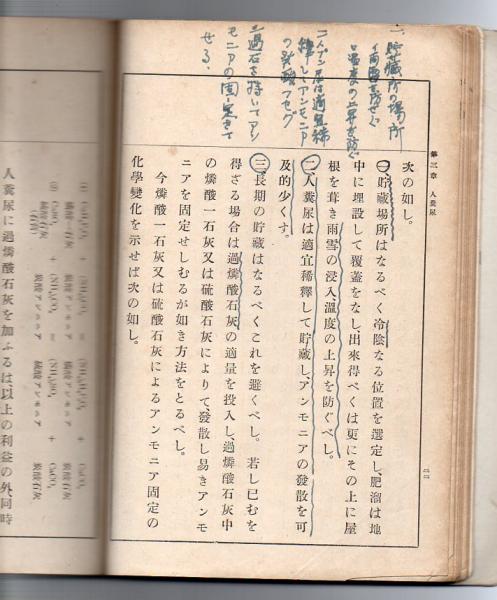 一、貯蔵所の場所
イ雨雪を防ぐ
ロ温度の上昇を防ぐ
二、人プン尿は適宜稀
釋してアンモニア
の発散フセグ
三過石を
モニアの固
せる、
第三章 人糞尿
次の如し。
㊀貯蔵場所はなるべく冷陰なる位置を選定し、肥溜は地
中に埋設して覆蓋をなし、出來得べくは更にその上に屋
根を葺き雨雪の浸入、溫度の上昇を防ぐべし。
㊁、人糞尿は適宜稀釋して貯蔵し、アンモニアの發散を可
及的少くす。
㊂、長期の貯蔵はなるべくこれを避くべし。若し已むを
得ざる場合は過燐酸石灰の適量を投入し、過燐酸石灰中
の燐酸一石灰又は硫酸石灰によりて、發散し易きアンモ
ニアを固定せしむるが如き方法をとるべし。
今燐酸一石灰又は硫酸石灰によるアンモニア固定の
化學變化を示せば次の如し。
二二
人糞尿に過燐酸石灰を加ふるは以上の利益の外同時